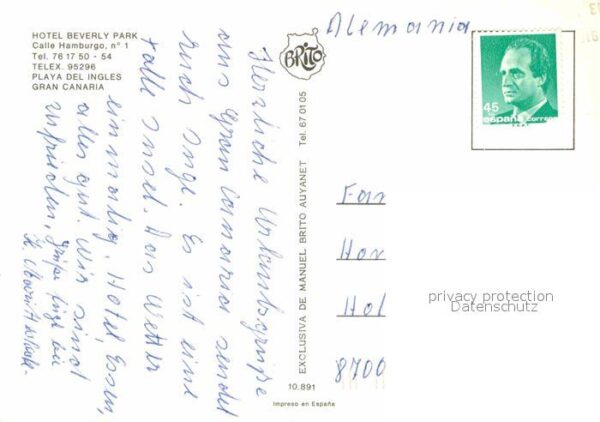 HOTEL BEVERLY PARK
Calle Hamburgo, n° 1
Tel. 76 17 50 - 54
TELEX. 95296
PLAYA DEL INGLES
GRAN CANARIA
BRITO
Alemania
45
españa correos
Herzliche Urlaubsgrüße
aus Gran Canaria sendet
Euch Inge. Es ist eine
tolle Insel. Das Wetter
einmalig. Hotel, Essen,
alles gut. Wir sind
zufrieden,
EXCLUSIVA DE MANUEL BRITO AUYANET Tel. 67 01 05
Fam
Hor
Hol
8700
privacy protection
Datenschutz
10.891
Impreso en España